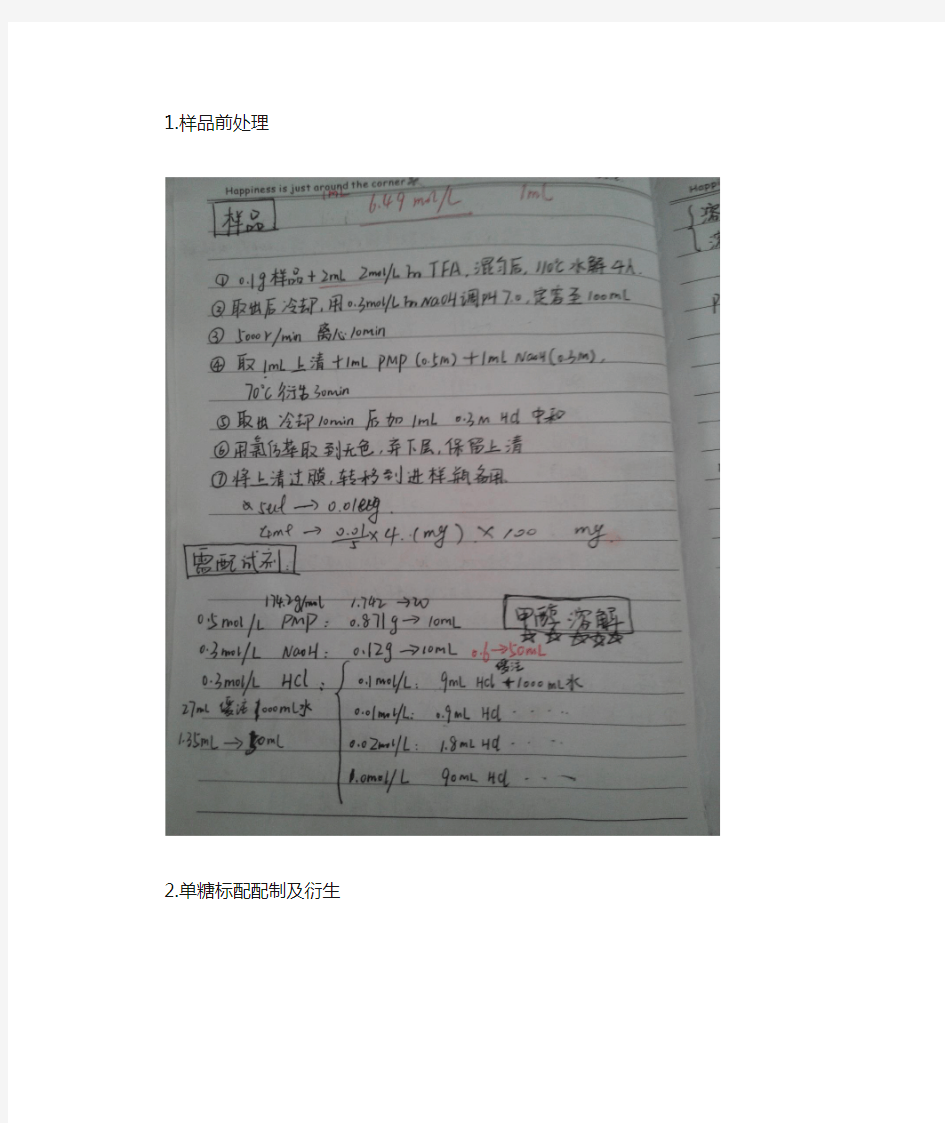 1.样品前处理
Happiness is just around the corner
1mL 6.49 mol/L 1mL
Happ
样品
① 0.1g样品+2mL 2mol/L的TFA,混匀后,110℃水解4h.
② 取出后冷却,用0.3mol/L的NaOH调pH 7.0,定容至100mL
③ 5000r/min 离心10min
④ 取1mL上清+1mL PMP (0.5M)+1mL NaOH(0.3M),
70℃衍生30min
⑤ 取出冷却10min后加1mL 0.3M HCl 中和
⑥ 用氯仿萃取到无色,弃下层,保留上清
⑦ 将上清过膜,转移到进样瓶备用.
→ 0.01
→ 0.01/5×4.(mg)×100 mg
需配试剂:
174.2g/mol 1.742→20
0.5mol/L PMP: 0.871g→10mL 甲醇溶解
0.3mol/L NaOH: 0.12g→10mL 0.6→50mL
0.3mol/L HCl: 0.1mol/L: 9mL HCl 缓注+1000mL水
27mL 缓注1000mL水 0.01mol/L: 0.9mL HCl ····
1.35mL→50mL 0.02mol/L: 1.8mL HCl ····
1.0mol/L 90mL HCl ···
2.单糖标配配制及衍生